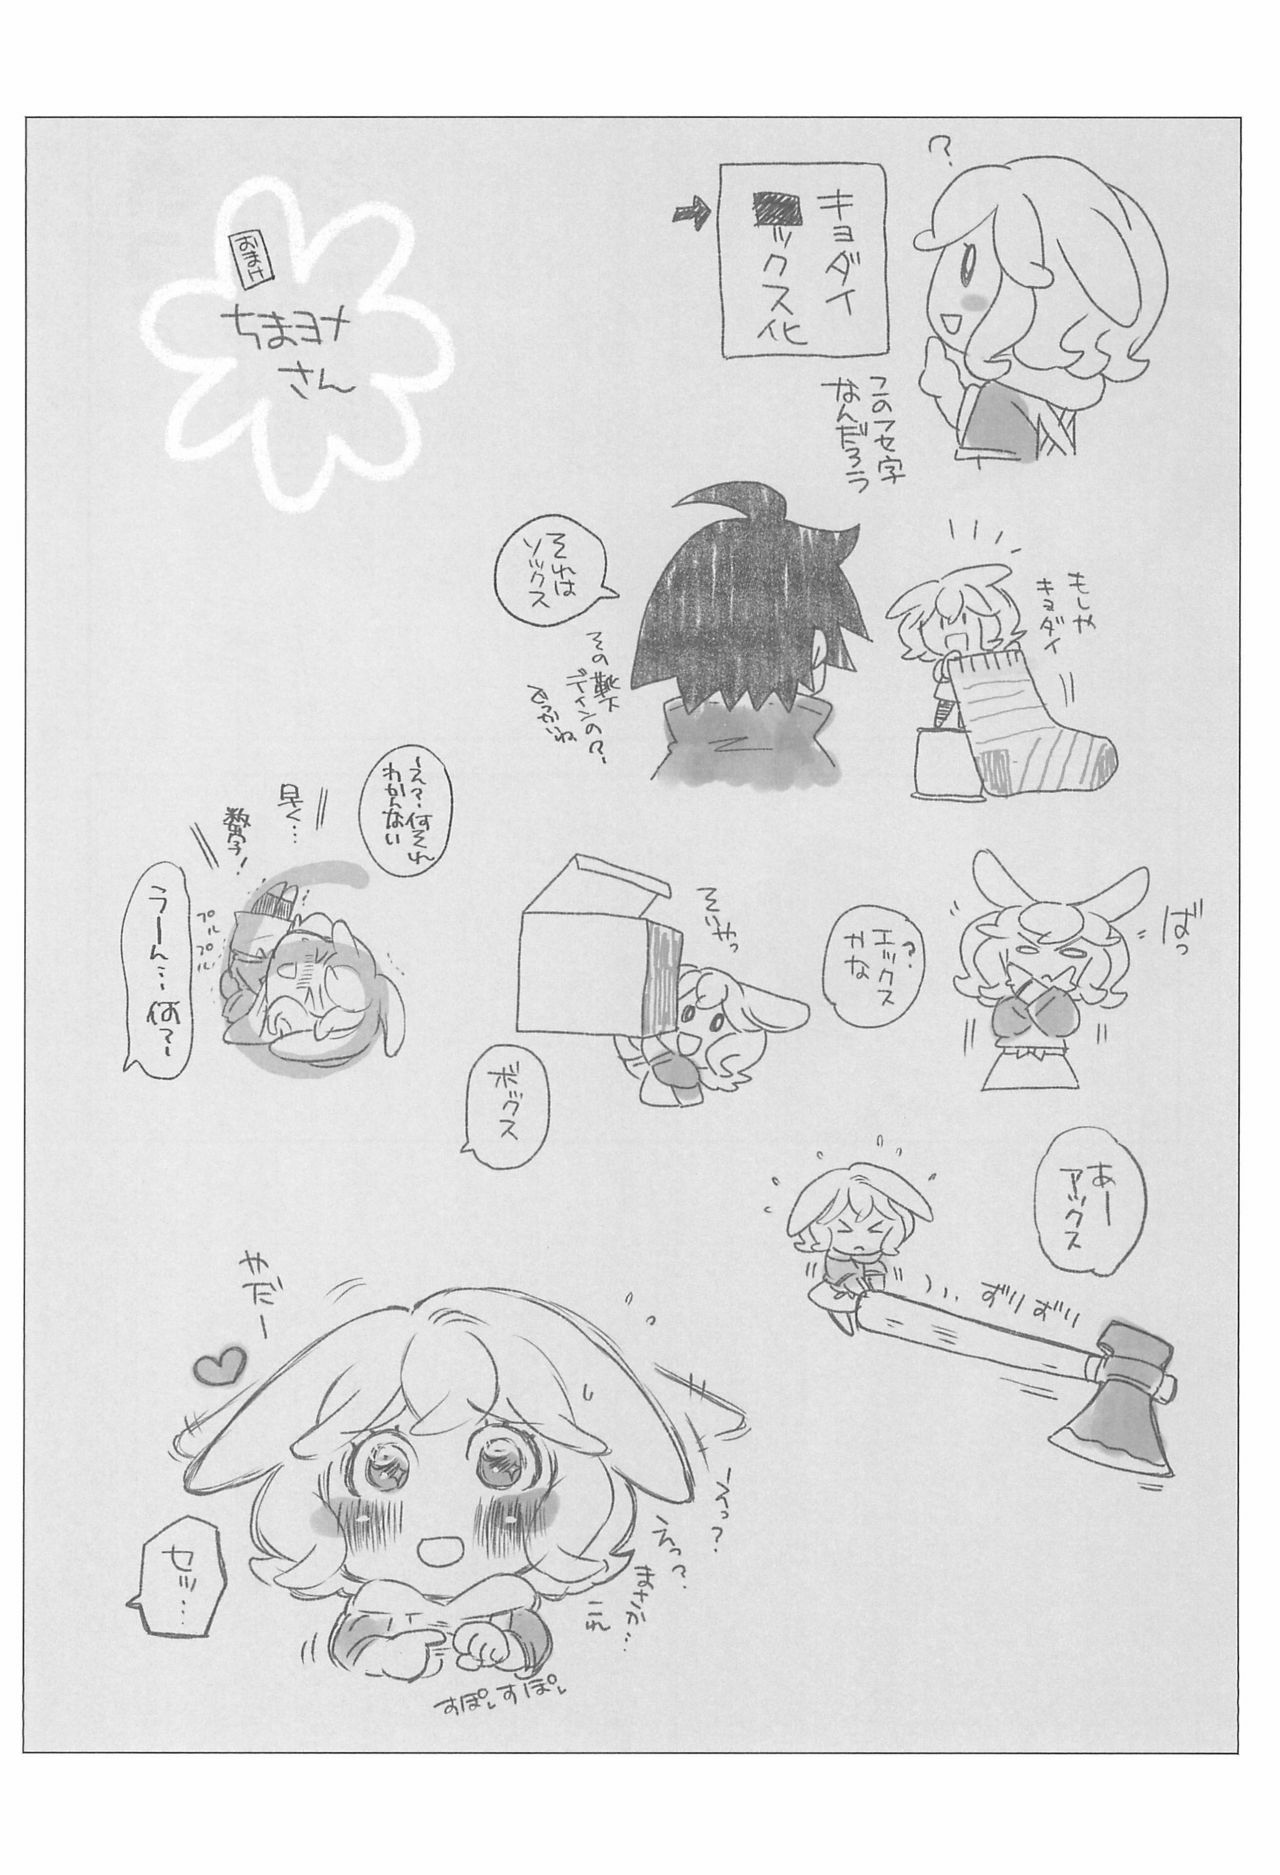 ?
キョダイ
ックス化
このフセ字
なんだろう
おまけ
ちまヨメ
さん
もしや
キョダイ
それは
ソックス
その靴下
ディンの?
でっかいね
ばっ
エックス
かな?
そいやっ
ボックス
え?何それ
わかんない
早く…
数字!
プルプル
うーん…何?
あー
アックス
ずりずり
やだー
セッ…
えっ?
えっ?
まさか…
これ
すぽすぽ